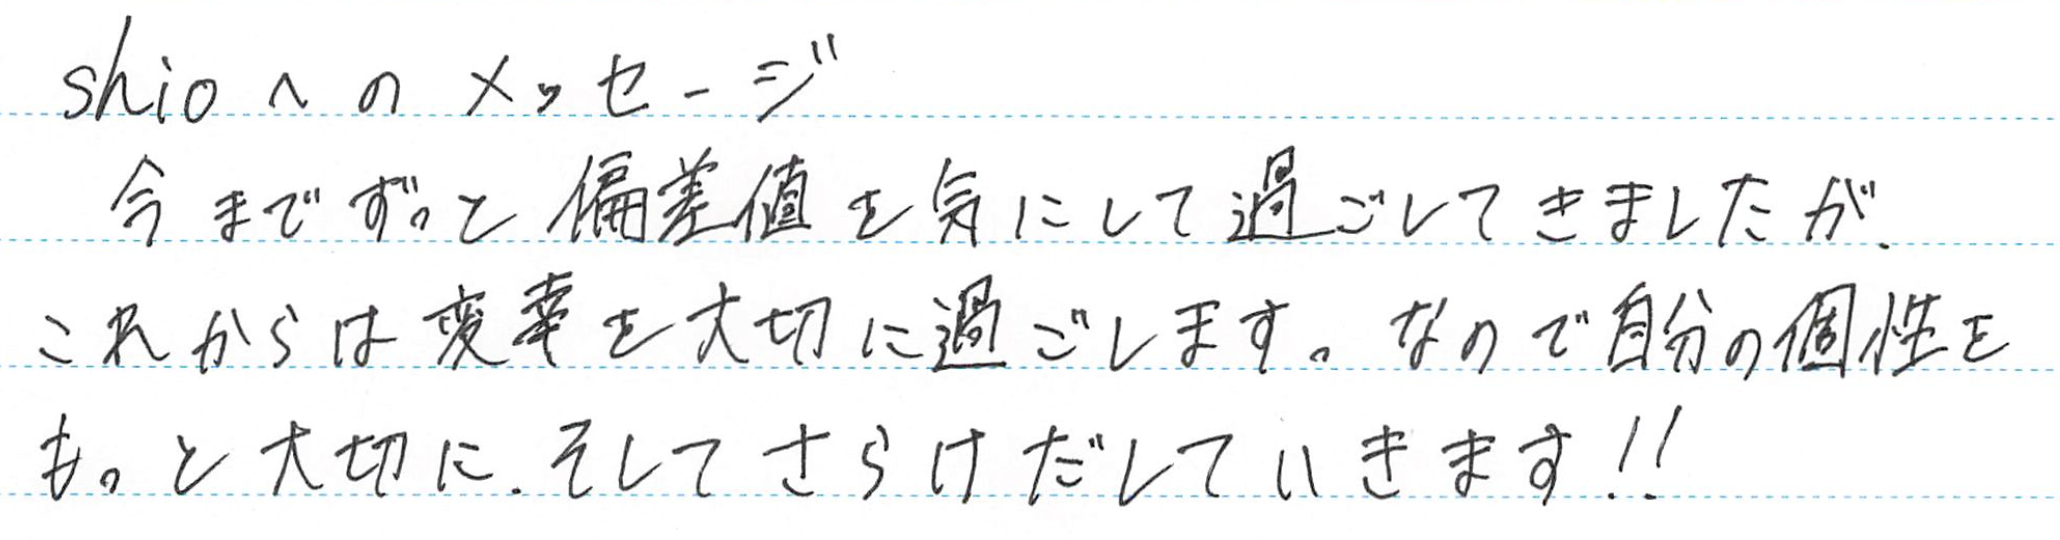 shioへのメッセージ
今までずっと偏差値を気にして過ごしてきましたが、
これからは変差を大切に過ごします。なので自分の個性を
もっと大切に、そしてさらけだしていきます!!